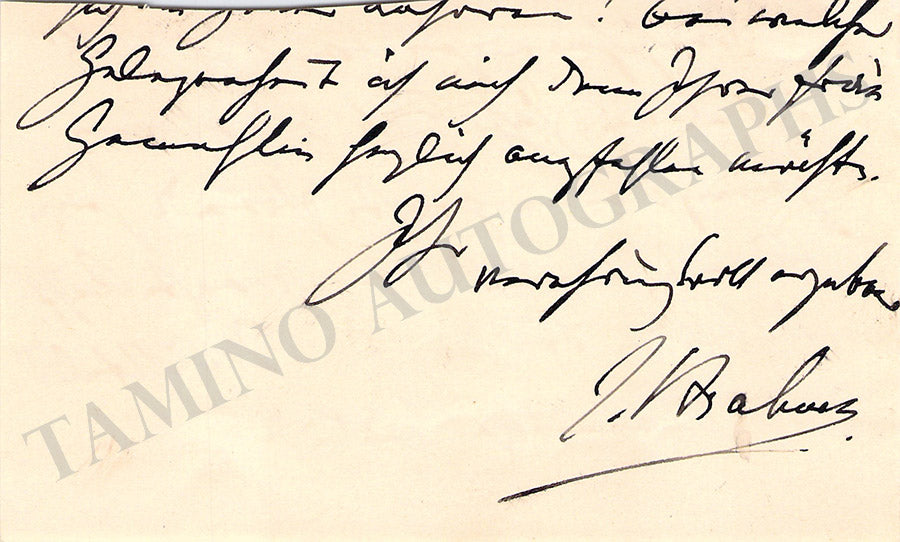 bei welcher
Gelegenheit ich mich denn Ihrer Frau
Gemahlin herzlich empfehlen möchte.
Ihr
verehrungsvoll ergebener
J. Brahms
TAMINO AUTOGRAPHS